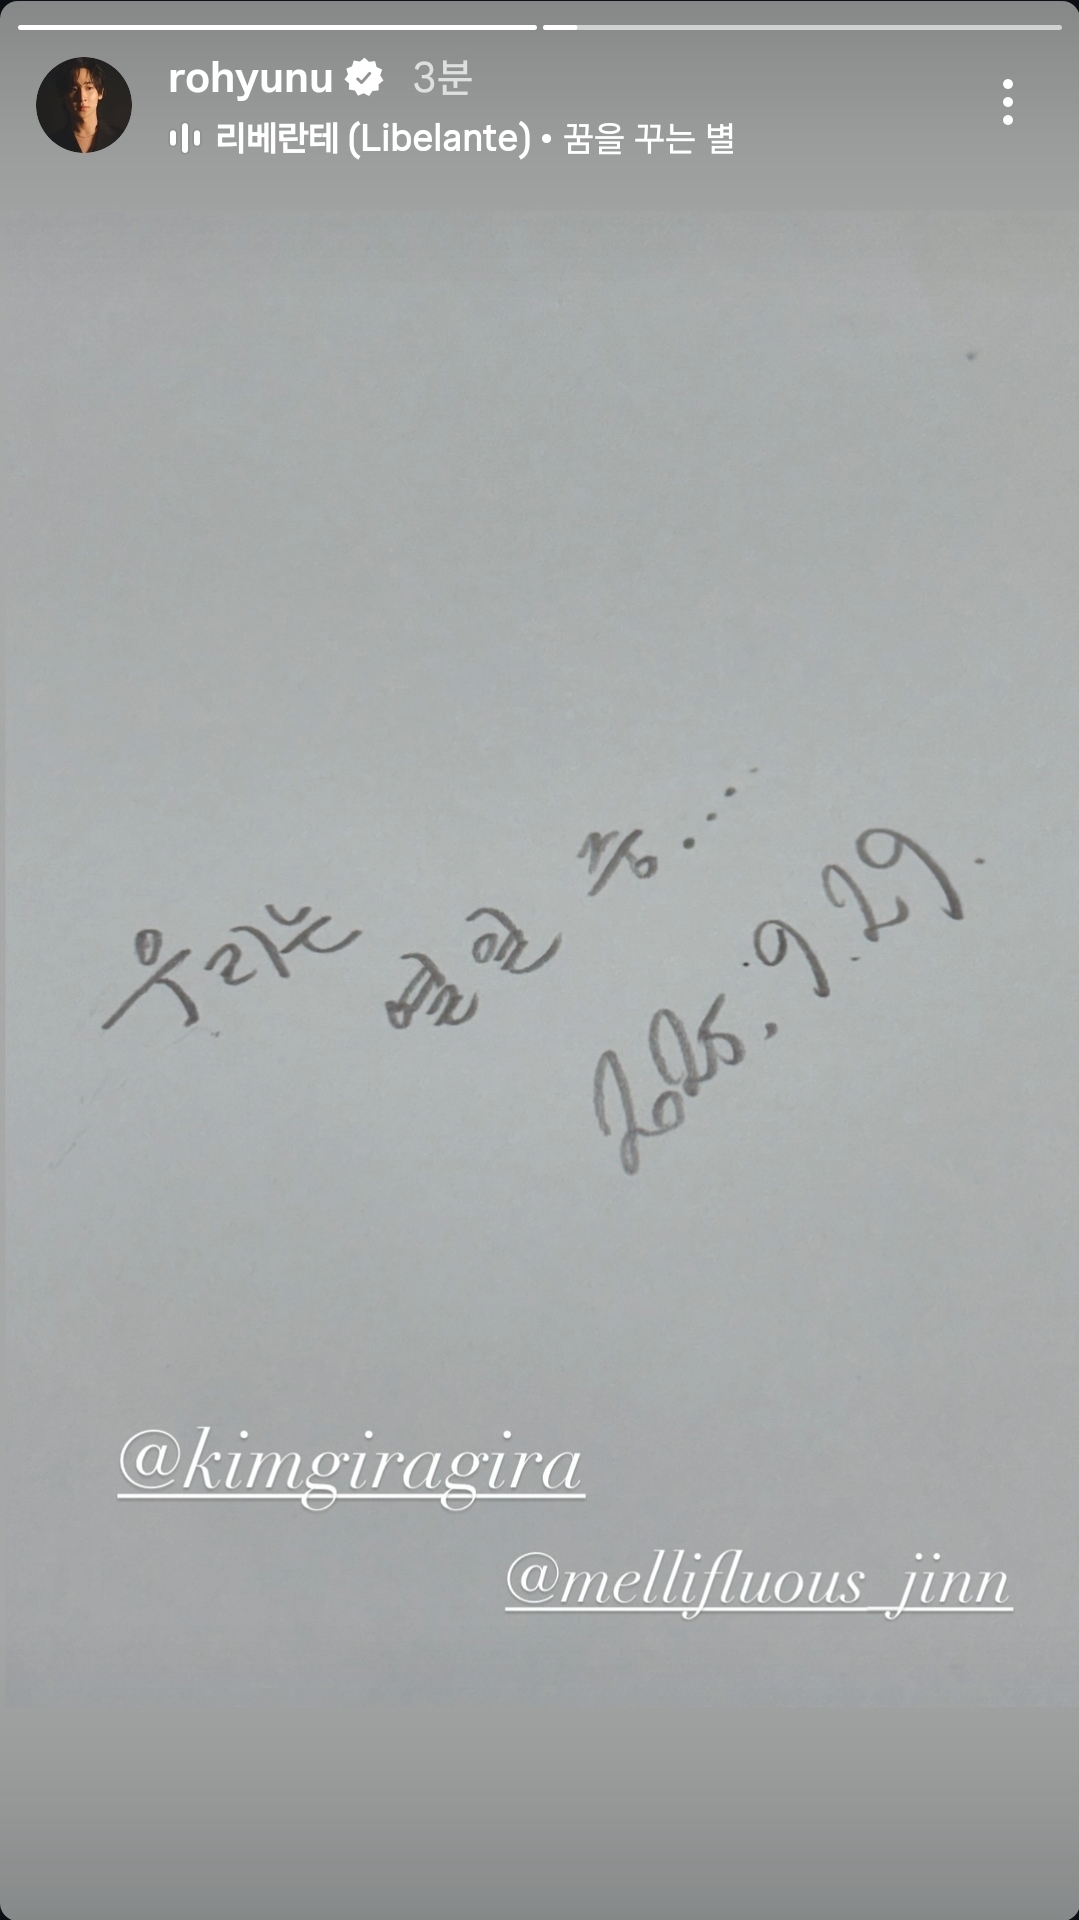 rohyunu 3분
리베란테 (Libelante) • 꿈을 꾸는 별
우리는
2025.9.29.
@kimgiragira
@mellifluous_jinn